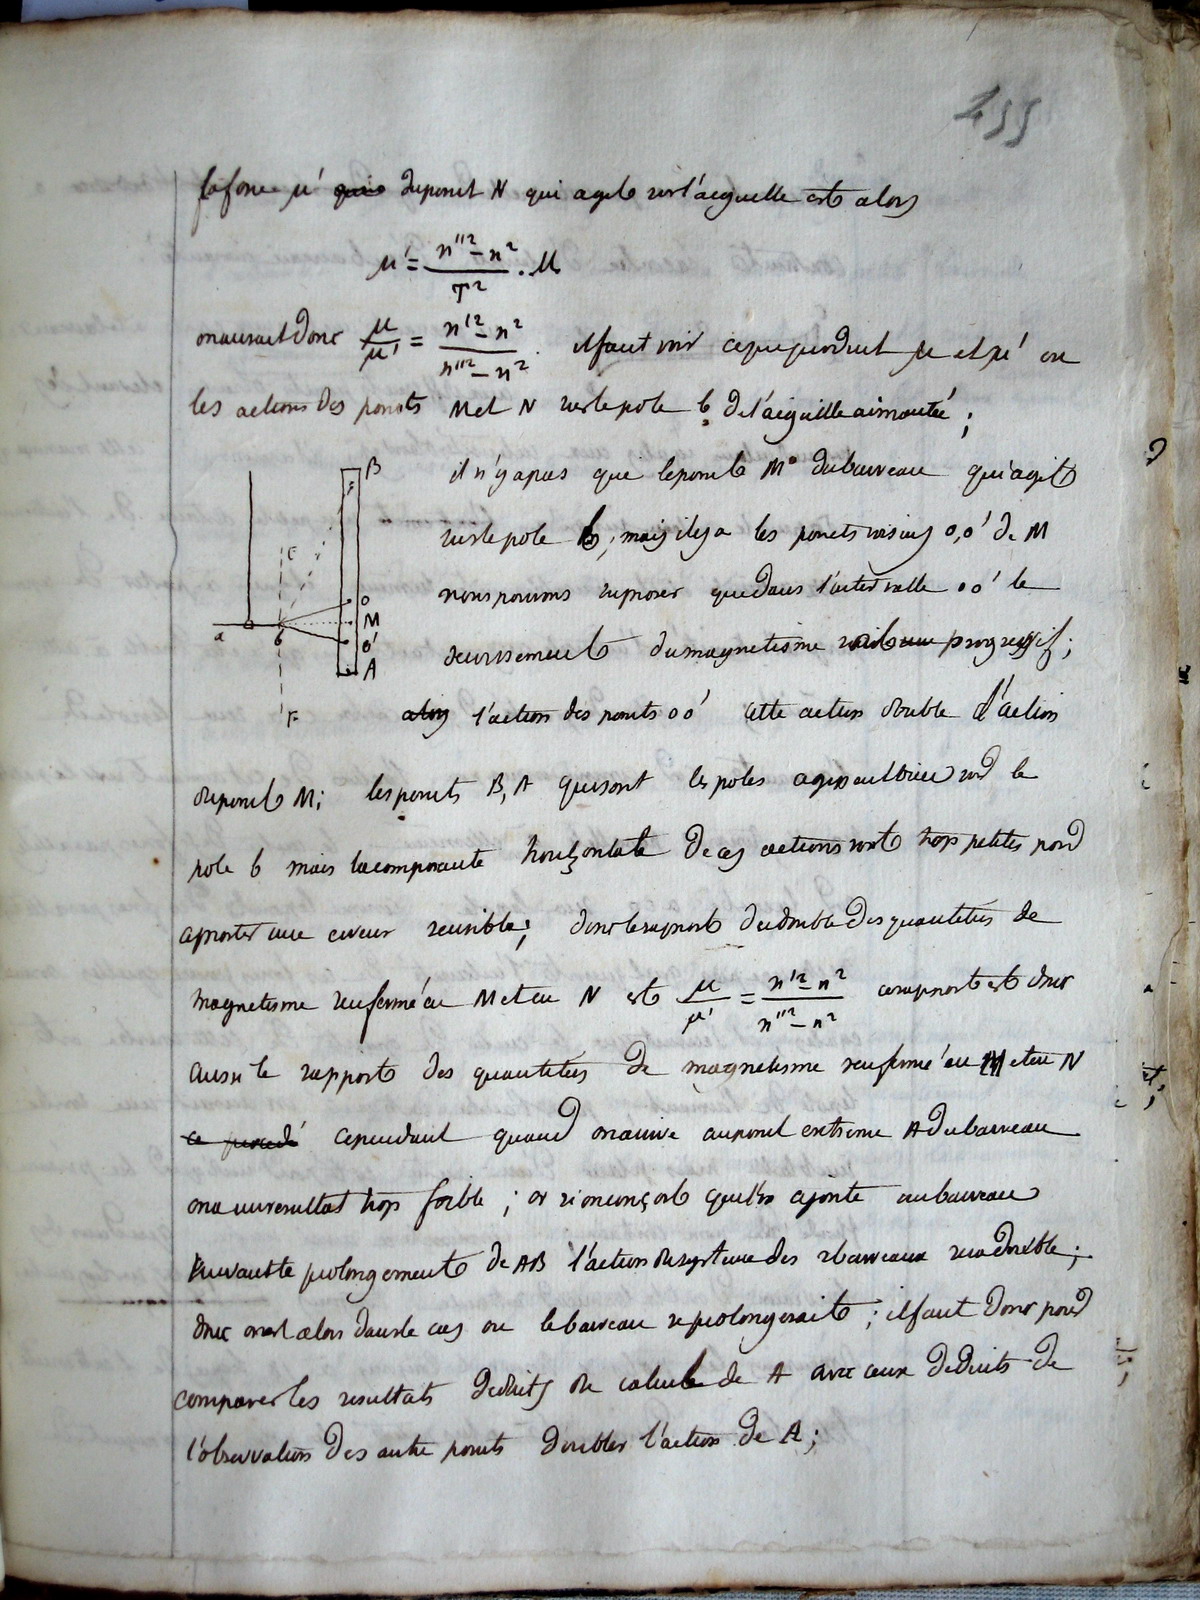 455
la force μ' du point N qui agit sur l'aiguille est alors
μ' = (n''² - n²)/T² . M
on aurait donc μ/μ' = (n'² - n²)/(n''² - n²). il faut voir ce que produit μ et μ' ou
les actions des points M et N sur le pole b de l'aiguille aimantée ;
il n'y a pas que le point M du barreau qui agit
sur le pole b, mais il y a les points voisins o,o' de M
nous pouvons suposer que dans l'intervalle oo' le
decroissement du magnetisme soit progressif ;
alors l'action des points oo' cette action double d'action
du point M ; les points B, A qui sont les poles agissent bien sur le
pole b mais la composante horizontale de ces actions sont trop petites pour
aporter une erreur sensible ; donc le raport du double des quantités de
magnetisme renfermé en M et en N est μ/μ' = (n'² - n²)/(n''² - n²) ce raport est donc
aussi le rapport des quantités de magnetisme renfermé en M et en N
ce procedé cependant quand on arrive au point extreme A du barreau
on a un resultat trop foible ; or si on conçoit qu'on ajoute un barreau
suivant le prolongement de AB l'action du systeme des 2 barreaux sera double ;
donc on est alors dans le cas ou le barreau se prolongerait ; il faut donc pour
comparer les resultats deduits du calcul de A avec ceux deduits de
l'observation des autre points doubler l'action de A ;
B
C
o
M
o'
A
a
b
F